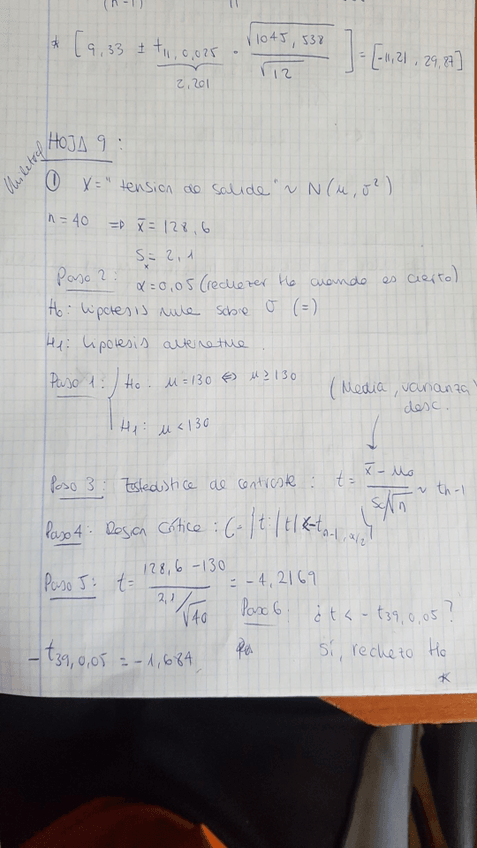 (n-1)
* [9,33 ± t11, 0,025 · √1045,538 / √12] = [-11,21 , 29,87]
2,201
HOJA 9:
Unilateral
① X = "tension de salida" ~ N(μ, σ²)
n = 40 ⇒ x̄ = 128,6
Sx = 2,1
Paso 2: α = 0,05 (rechazar Ho cuando es cierto)
Ho: hipotesis nula sobre σ (=)
H1: hipotesis alternativa.
Paso 1: { Ho: μ = 130 ⇔ μ ≥ 130
H1: μ < 130
(Media, varianza desc.
Paso 3: Estadistico de contraste: t = x̄ - μo / S/√n ~ tn-1
Paso 4: Region Crítica: C = {t: |t| < -tn-1, α/2}
Paso 5: t = 128,6 - 130 / 2,1/√40 = -4,2169
Paso 6: ¿t < - t39, 0,05?
- t39, 0,05 = -1,684
Sí, rechazo Ho
*